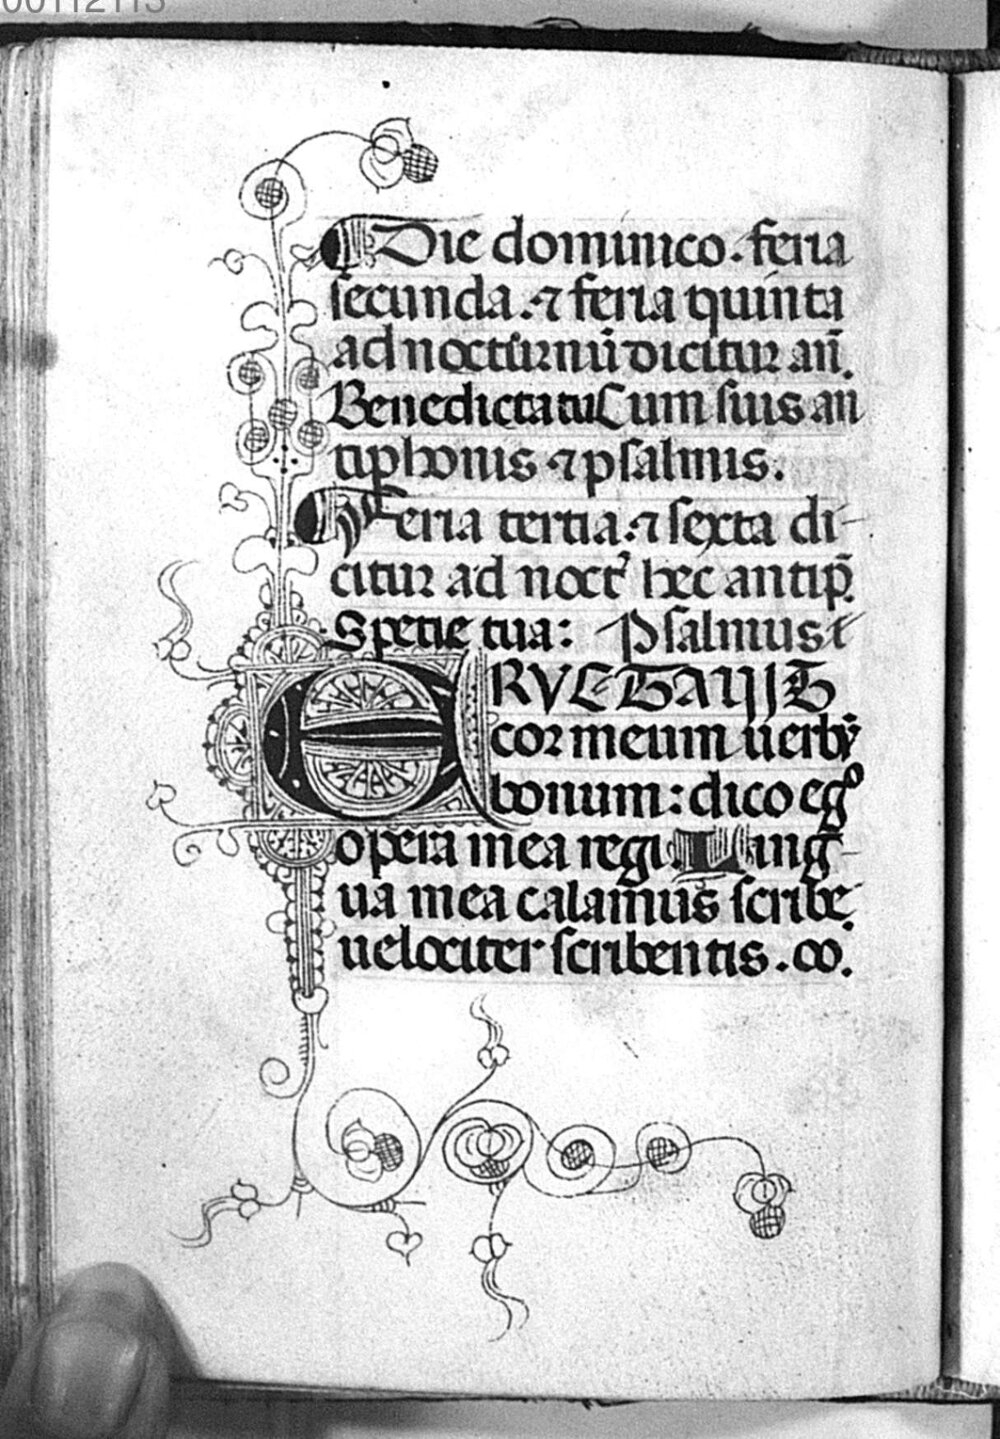 00112113
Die dominico. feria
secunda. ⁊ feria quinta
ad nocturnū dicitur an̄.
Benedicta tu Cum suis an
tiphonis ⁊ psalmis.
Feria tertia. ⁊ sexta di-
citur ad noct᷑ hec antip̄.
Spetie tua: Psalmus
ERUCTAUIT
cor meum uerbū
bonum: dico ego
opera mea regi. Ling-
ua mea calamus scribe
uelociter scribentis. co.